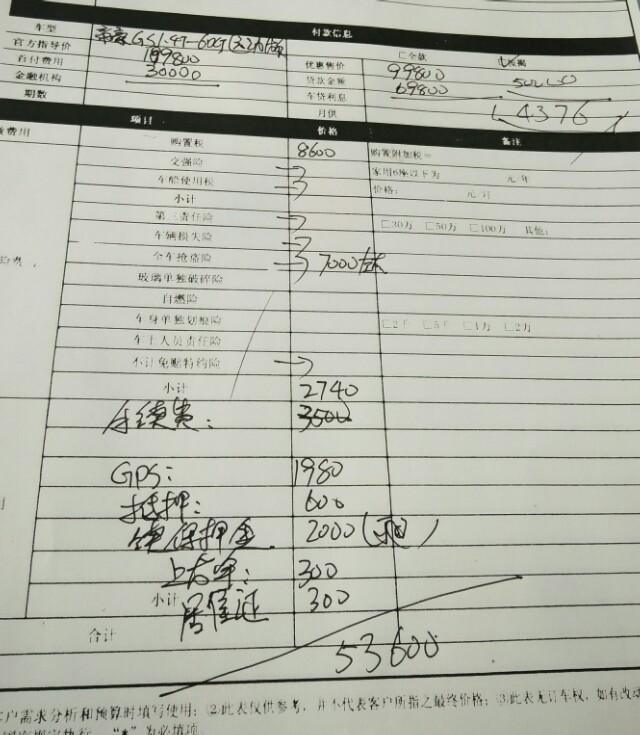 付款信息
车型 GS1.4T-6DCT
官方指导价 109800 优惠售价 99800 □全款
首付费用 30000 贷款金额 69800
金融机构 车贷利息 4376
期数 月供
项目 价格 备注
费用 购置税 8600 购置附加税=
交强险 家用6座以下为 元/年
车船使用税 价格: 元/
小计
第三责任险 □30万 □50万 □100万 其他:
车辆损失险
全车抢盗险 7000左右
玻璃单独破碎险
自燃险
车身单独划痕险 □2千 □5千 □1万 □2万
车上人员责任险
不计免赔特约险
小计 2740
手续费: 3500
GPS: 1980
抵押: 600
续保押金 2000(退)
上户费: 300
小计
居住证 300
合计 53600
客户需求分析和预算时填写使用; ②此表仅供参考, 并不代表客户所指之最终价格; ③此表无订车权, 如有改动
"*"为必填项